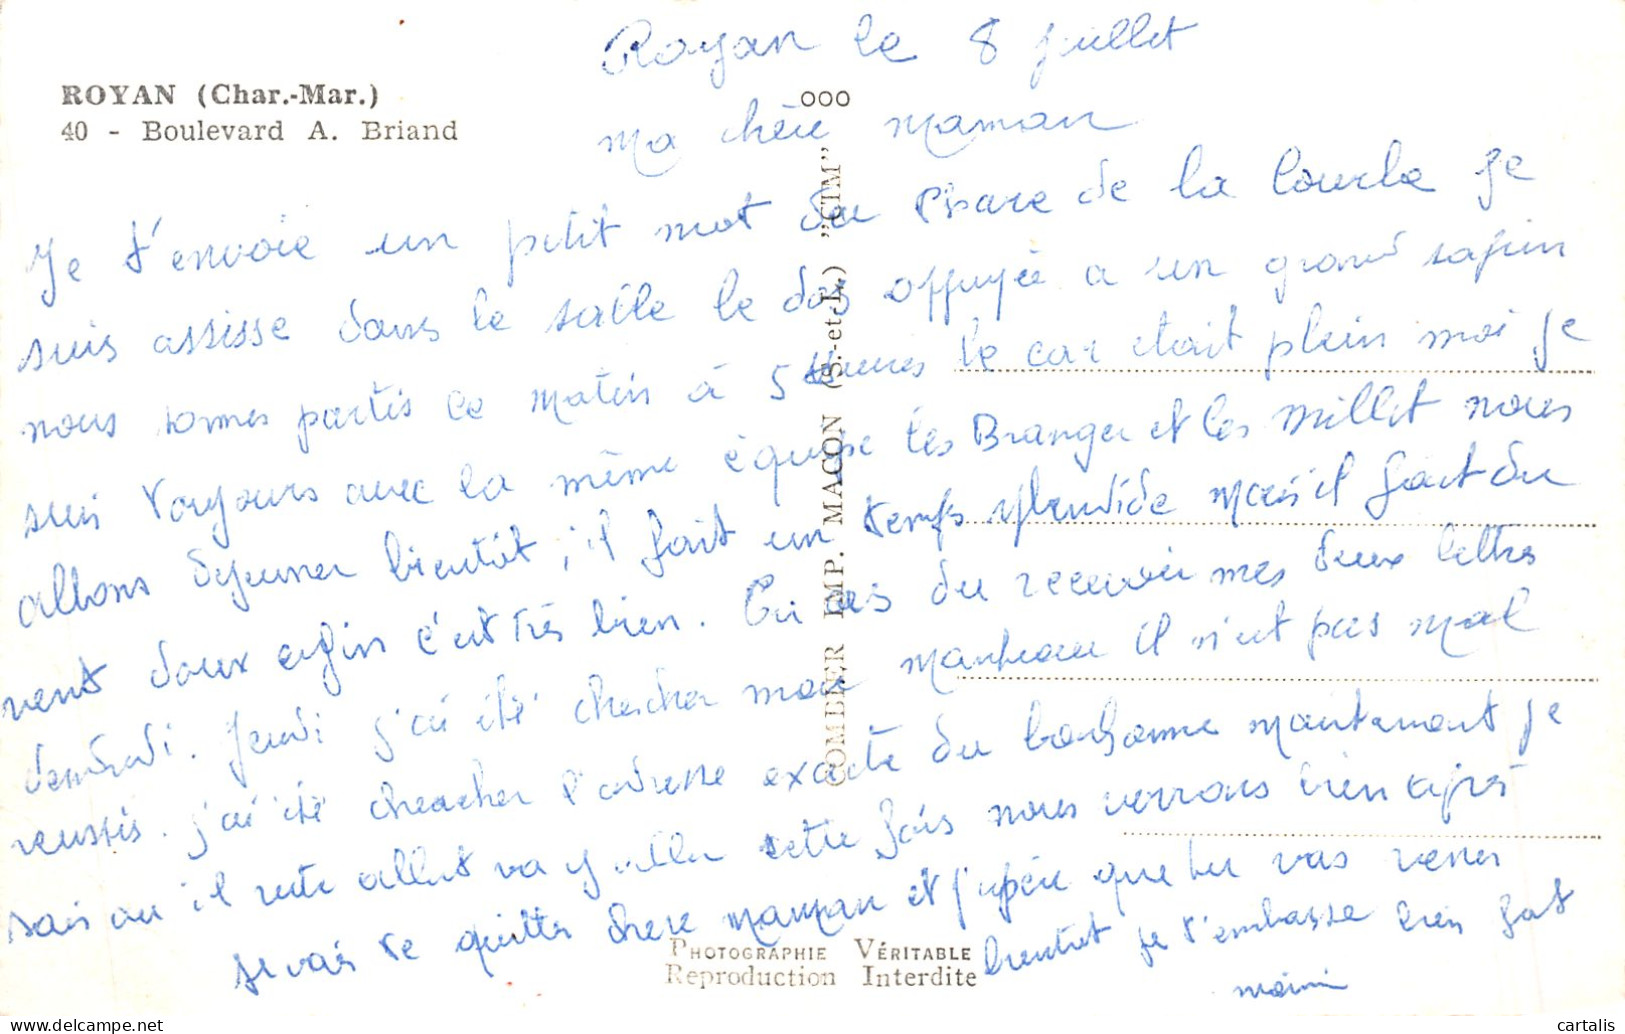 Royan le 8 juillet
ROYAN (Char.-Mar.)
40 - Boulevard A. Briand
ooo
Ma chère maman
Je t'envoie un petit mot du Phare de la Courbe je
suis assisse dans le sable le dos appuyée a un grand sapin
nous sommes partis ce matin à 5 Heures le car etait plein moi je
suis toujours avec la même équipe les Branger et les Millet nous
allons dejeuner bientôt, il fait un temps splendide mais il fait du
vent doux enfin c'est très bien. Tu as du recevoir mes deux lettres
vendredi. Jeudi j'ai été chercher mon manteau il n'est pas mal
reussis. j'ai été cheacher l'adresse exacte du bonhomme maintenant je
sais ou il reste allet va y aller cette fois nous verrons bien après
je vais te quitter chere maman et j'espère que tu vas
bientot je t'embasse bien fort
mimi
COMBIER IMP. MACON (S.-et-L.) "CTM"
PHOTOGRAPHIE VÉRITABLE
Reproduction Interdite
cartalis